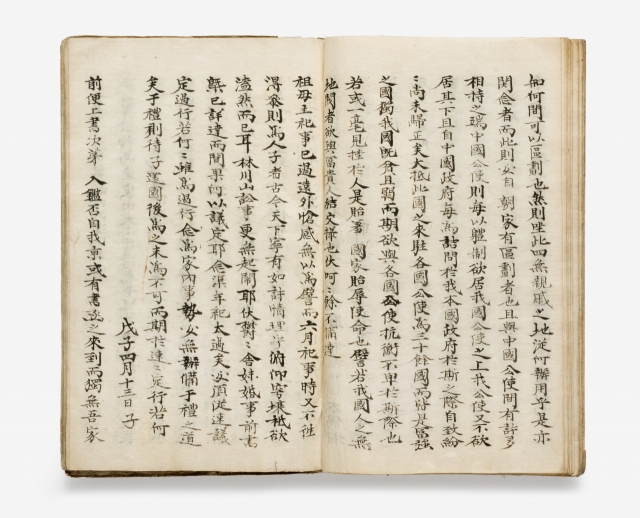 如何間可以區劃也然則坐此四無親戚之地從何辦用乎是亦
関念者而此則必自 朝家有區劃者也且與中國公使間有許多
相持之端中國公使則每以軆制欲居我國公使之上我公使又不欲
居其下且自中國政府每爲詰問於我本國政府於斯之際自致紛
〻尚未歸正矣大抵此國之來駐各國公使爲三十餘國而皆是富強
之國獨我國旣貧且弱而期欲與各國公使抗衡不卑於斯際也
若或一毫見挫於人是貽羞 國家貽辱使命也譬若我國人之無
地閥者欲與富貴人結交樣也伏呵〻餘不備達
祖母主祀事已過遠外愴感無以爲譬而六月祀事時又不啙
得參則爲人子者古今天下寧有如許情理乎俯仰穹壤秪欲
溘然而已耳林川山訟事更無起鬧耶伏欝〻舍妹婚事前書
槩已詳達而間果何以議定耶念渠年祀太過矣必須從速議
定過行若何〻雖爲過行念爲家內事勢必無辦備于禮之道
矣于禮則待子還國後爲之未爲不可而期於速〻定行若何
戊子四月十三日子
前便上書次第 入鑑否自我京或有書函之來到而獨無吾家